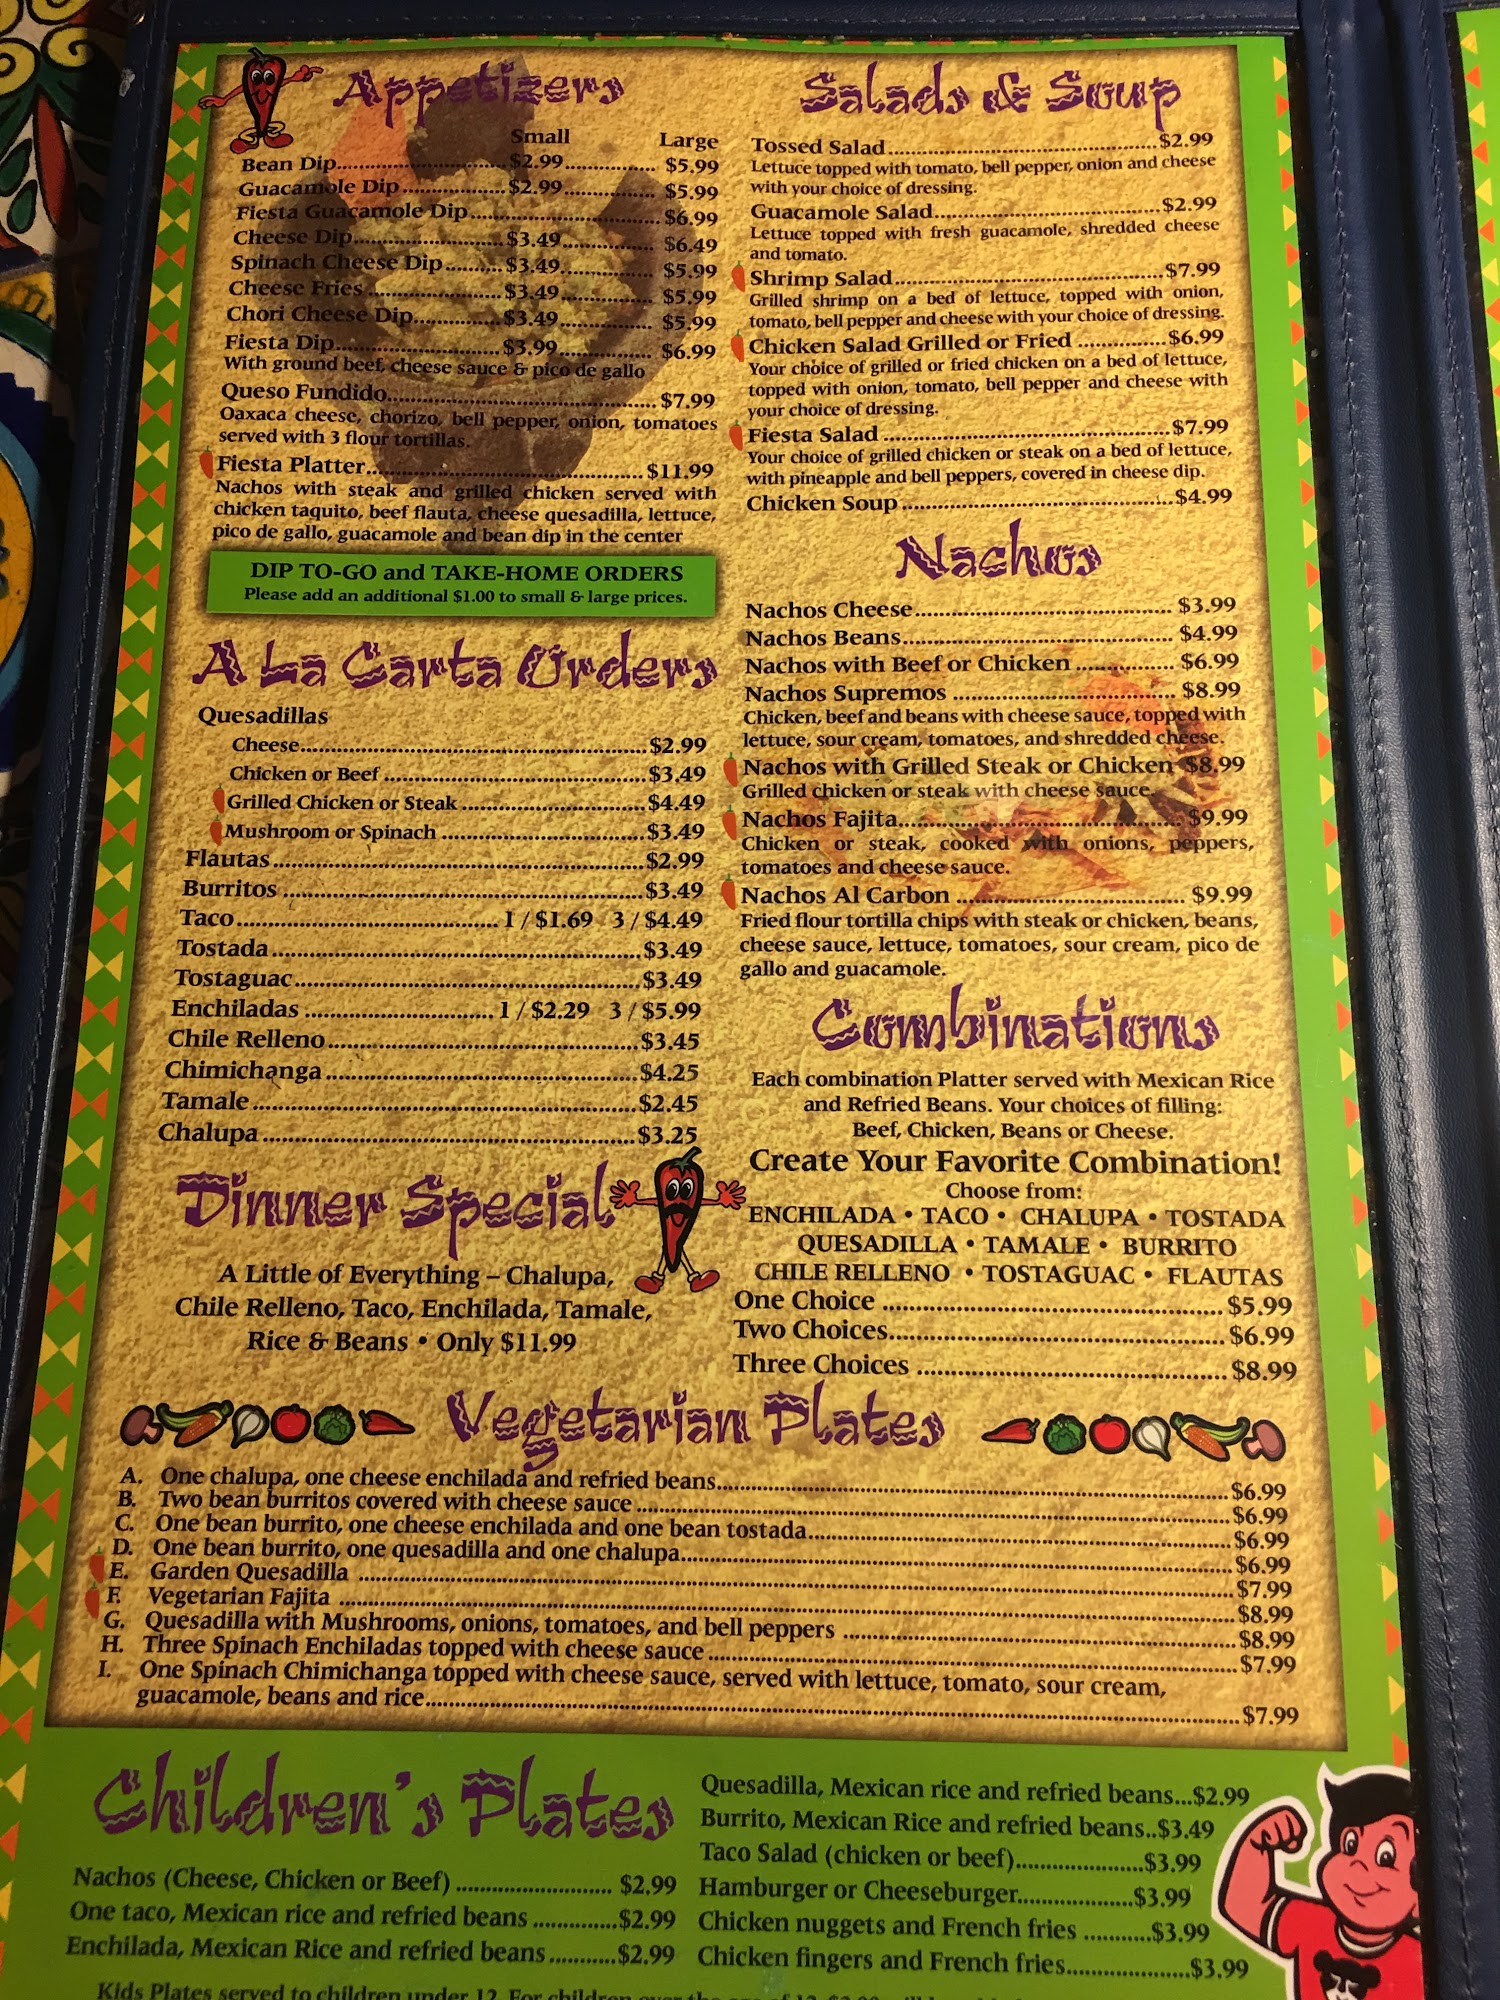 Appetizers
Small Large
Bean Dip $2.99 $5.99
Guacamole Dip $2.99 $5.99
Fiesta Guacamole Dip $6.99
Cheese Dip $3.49 $6.49
Spinach Cheese Dip $3.49 $5.99
Cheese Fries $3.49 $5.99
Chori Cheese Dip $3.49 $5.99
Fiesta Dip $3.99 $6.99
With ground beef, cheese sauce & pico de gallo
Queso Fundido $7.99
Oaxaca cheese, chorizo, bell pepper, onion, tomatoes
served with 3 flour tortillas.
Fiesta Platter $11.99
Nachos with steak and grilled chicken served with
chicken taquito, beef flauta, cheese quesadilla, lettuce,
pico de gallo, guacamole and bean dip in the center
DIP TO-GO and TAKE-HOME ORDERS
Please add an additional $1.00 to small & large prices.
A La Carta Orders
Quesadillas
Cheese $2.99
Chicken or Beef $3.49
Grilled Chicken or Steak $4.49
Mushroom or Spinach $3.49
Flautas $2.99
Burritos $3.49
Taco 1 / $1.69 3 / $4.49
Tostada $3.49
Tostaguac $3.49
Enchiladas 1 / $2.29 3 / $5.99
Chile Relleno $3.45
Chimichanga $4.25
Tamale $2.45
Chalupa $3.25
Dinner Special
A Little of Everything – Chalupa,
Chile Relleno, Taco, Enchilada, Tamale,
Rice & Beans • Only $11.99
Salads & Soup
Tossed Salad $2.99
Lettuce topped with tomato, bell pepper, onion and cheese
with your choice of dressing.
Guacamole Salad $2.99
Lettuce topped with fresh guacamole, shredded cheese
and tomato.
Shrimp Salad $7.99
Grilled shrimp on a bed of lettuce, topped with onion,
tomato, bell pepper and cheese with your choice of dressing.
Chicken Salad Grilled or Fried $6.99
Your choice of grilled or fried chicken on a bed of lettuce,
topped with onion, tomato, bell pepper and cheese with
your choice of dressing.
Fiesta Salad $7.99
Your choice of grilled chicken or steak on a bed of lettuce,
with pineapple and bell peppers, covered in cheese dip.
Chicken Soup $4.99
Nachos
Nachos Cheese $3.99
Nachos Beans $4.99
Nachos with Beef or Chicken $6.99
Nachos Supremos $8.99
Chicken, beef and beans with cheese sauce, topped with
lettuce, sour cream, tomatoes, and shredded cheese.
Nachos with Grilled Steak or Chicken $8.99
Grilled chicken or steak with cheese sauce.
Nachos Fajita $9.99
Chicken or steak, cooked with onions, peppers,
tomatoes and cheese sauce.
Nachos Al Carbon $9.99
Fried flour tortilla chips with steak or chicken, beans,
cheese sauce, lettuce, tomatoes, sour cream, pico de
gallo and guacamole.
Combinations
Each combination Platter served with Mexican Rice
and Refried Beans. Your choices of filling:
Beef, Chicken, Beans or Cheese.
Create Your Favorite Combination!
Choose from:
ENCHILADA • TACO • CHALUPA • TOSTADA
QUESADILLA • TAMALE • BURRITO
CHILE RELLENO • TOSTAGUAC • FLAUTAS
One Choice $5.99
Two Choices $6.99
Three Choices $8.99
Vegetarian Plates
A. One chalupa, one cheese enchilada and refried beans $6.99
B. Two bean burritos covered with cheese sauce $6.99
C. One bean burrito, one cheese enchilada and one bean tostada $6.99
D. One bean burrito, one quesadilla and one chalupa $6.99
E. Garden Quesadilla $7.99
F. Vegetarian Fajita $8.99
G. Quesadilla with Mushrooms, onions, tomatoes, and bell peppers $8.99
H. Three Spinach Enchiladas topped with cheese sauce $7.99
I. One Spinach Chimichanga topped with cheese sauce, served with lettuce, tomato, sour cream,
guacamole, beans and rice $7.99
Children's Plates
Nachos (Cheese, Chicken or Beef) $2.99
One taco, Mexican rice and refried beans $2.99
Enchilada, Mexican Rice and refried beans $2.99
Quesadilla, Mexican rice and refried beans...$2.99
Burrito, Mexican Rice and refried beans..$3.49
Taco Salad (chicken or beef) $3.99
Hamburger or Cheeseburger $3.99
Chicken nuggets and French fries $3.99
Chicken fingers and French fries $3.99
Kids Plates served to children under 12. For children